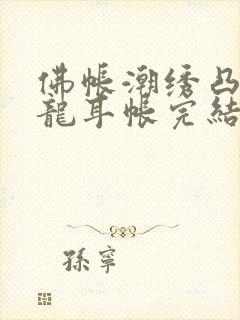 佛帐潮绣凸
龍耳帳完結
孫寧